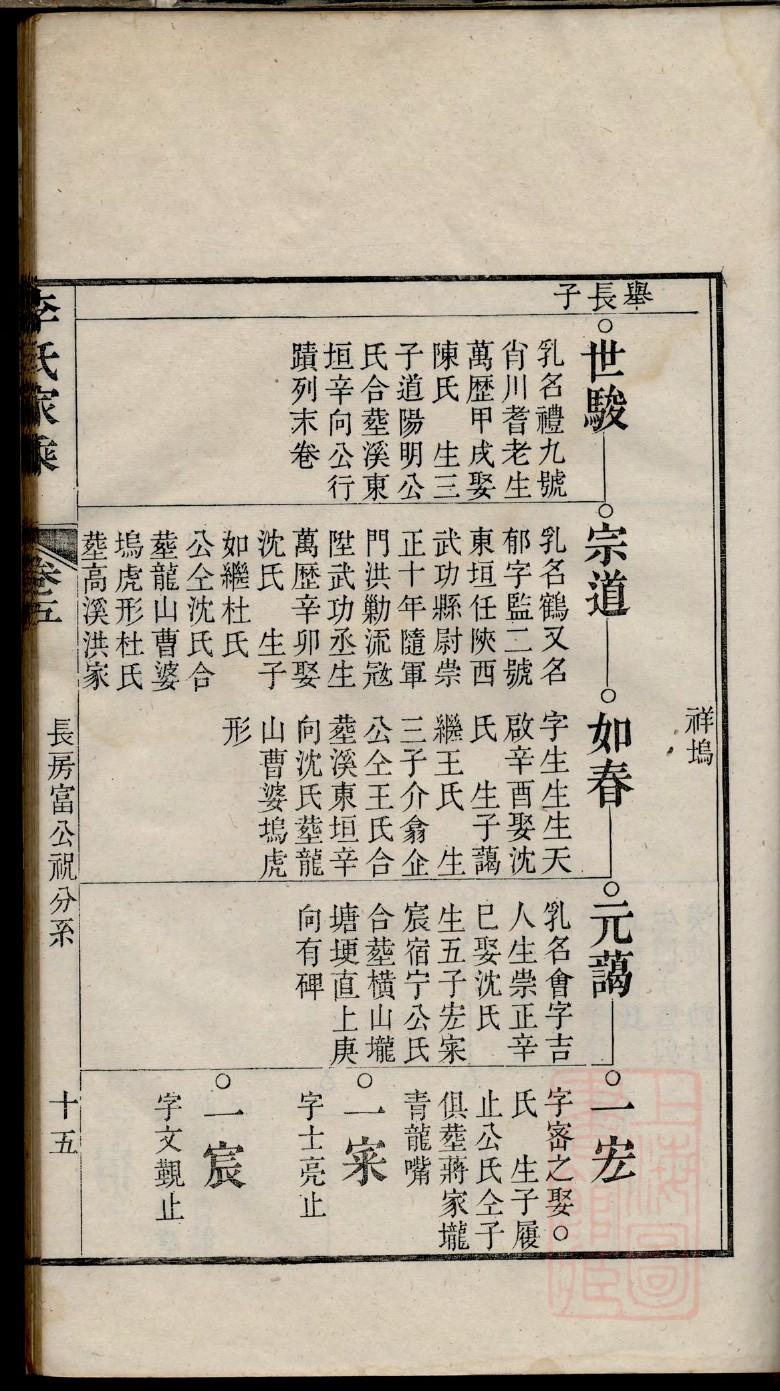 祥塢
舉長子
世駿
乳名禮九號
肖川耆老生
萬歷甲戌娶
陳氏 生三
子道陽明公
氏合塟溪東
垣辛向公行
蹟列末卷
宗道
乳名鶴又名
郁字監二號
東垣任陝西
武功縣尉崇
正十年隨軍
門洪勦流冦
陞武功丞生
萬歷辛卯娶
沈氏 生子
如繼杜氏
公仝沈氏合
塟龍山曹婆
塢虎形杜氏
塟高溪洪家
如春
字生生生天
啟辛酉娶沈
氏 生子藹
繼王氏 生
三子介翕企
公仝王氏合
塟溪東垣辛
向沈氏塟龍
山曹婆塢虎
形
元藹
乳名會字吉
人生崇正辛
巳娶沈氏
生五子宏寀
宸宿宁公氏
合塟橫山壠
塘埂直上庚
向有碑
一宏
字宻之娶○
氏 生子履
止公氏仝子
俱塟蔣家壠
青龍嘴
一寀
字士亮止
一宸
字文觀止
李氏家乘
卷五
長房富公祝分系
十五
上海圖書館藏